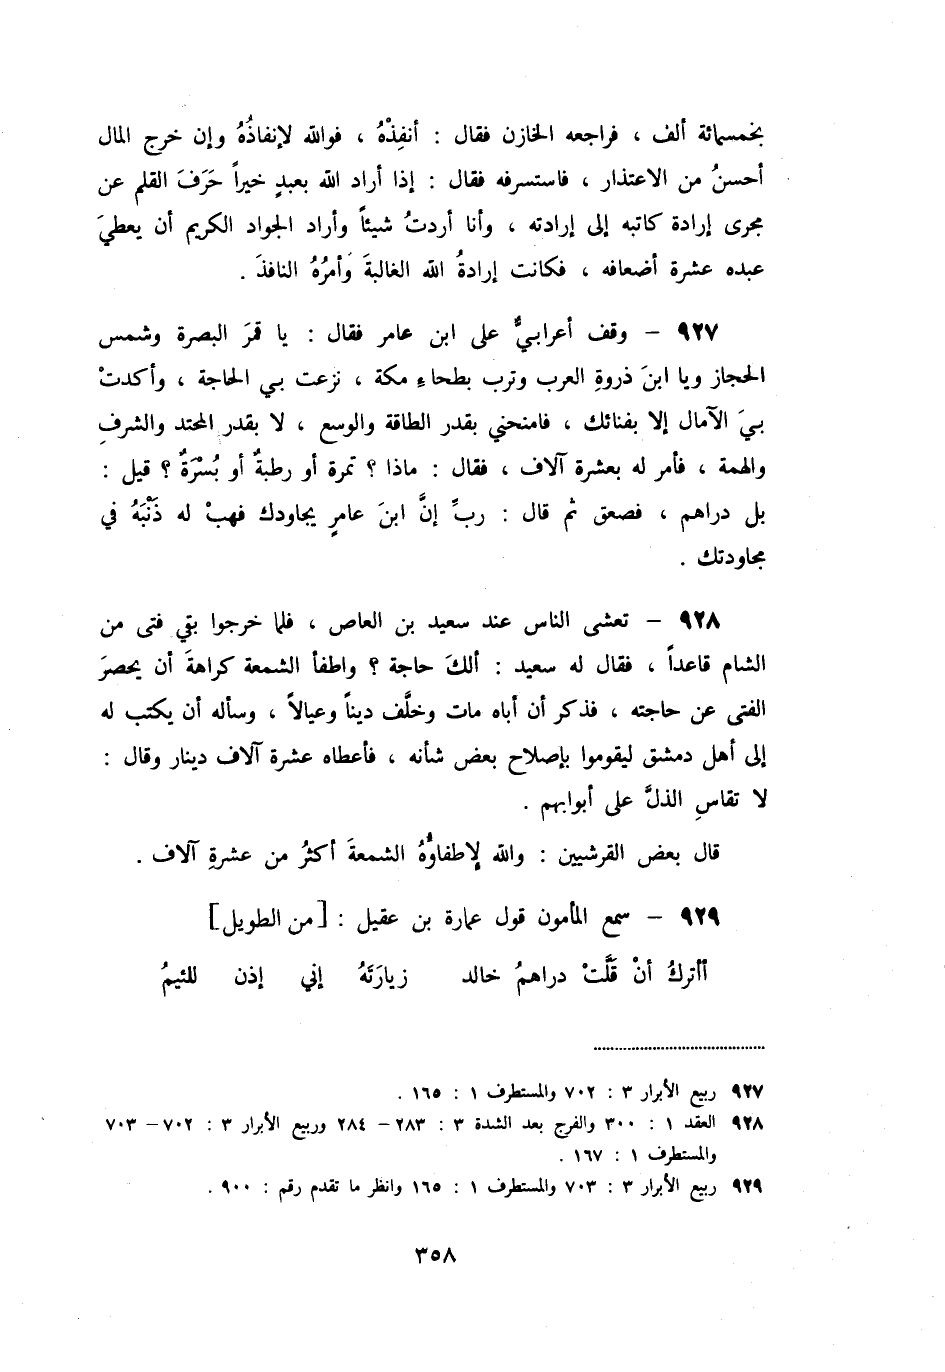 بخمسمائة ألف ، فراجعه الخازن فقال : أنفِذْهُ ، فوالله لإنفاذُهُ وإن خرج المال
أحسنُ من الاعتذار ، فاستسرفه فقال : إذا أراد الله بعبدٍ خيراً حَرَفَ القلم عن
مجرى إرادة كاتبه إلى إرادته ، وأنا أردتُ شيئاً وأراد الجواد الكريم أن يعطيَ
عبده عشرة أضعافه ، فكانت إرادةُ الله الغالبةَ وَأمرُهُ النافذَ .
٩٢٧ – وقف أعرابيٌّ على ابن عامر فقال : يا قمرَ البصرة وشمس
الحجاز ويا ابنَ ذروةِ العرب وترب بطحاءِ مكة ، نزعت بي الحاجة ، وأكدتْ
بيَ الآمال إلا بفنائك ، فامنحني بقدر الطاقة والوسع ، لا بقدر المحتد والشرفِ
والهمة ، فأمر له بعشرة آلاف ، فقال : ماذا ؟ تمرة أو رطبةٌ أو بُسْرَةٌ ؟ قيل :
بل دراهم ، فصعق ثم قال : ربِّ إنَّ ابنَ عامرٍ يجاودك فهبْ له ذَنْبَهُ في
مجاودتك .
٩٢٨ – تعشى الناس عند سعيد بن العاص ، فلما خرجوا بقي فتى من
الشام قاعداً ، فقال له سعيد : ألكَ حاجة ؟ واطفأ الشمعة كراهةَ أن يحصرَ
الفتى عن حاجته ، فذكر أن أباه مات وخلَّف ديناً وعيالاً ، وسأله أن يكتب له
إلى أهل دمشق ليقوموا بإصلاح بعض شأنه ، فأعطاه عشرة آلاف دينار وقال :
لا تقاسِ الذلَّ على أبوابهم .
قال بعض القرشيين : والله لإطفاوُّهُ الشمعةَ أكثرُ من عشرةِ آلاف .
٩٢٩ – سمع المأمون قول عمارة بن عقيل : [من الطويل]
أأتركُ أنْ قَلَّتْ دراهمُ خالد زيارَتَهُ إني إذن للئيمُ
٩٢٧ ربيع الأبرار ٣ : ٧٠٢ والمستطرف ١ : ١٦٥ .
٩٢٨ العقد ١ : ٣٠٠ والفرج بعد الشدة ٣ : ٢٨٣ – ٢٨٤ وربيع الأبرار ٣ : ٧٠٢ – ٧٠٣
والمستطرف ١ : ١٦٧ .
٩٢٩ ربيع الأبرار ٣ : ٧٠٣ والمستطرف ١ : ١٦٥ وانظر ما تقدم رقم : ٩٠٠ .
٣٥٨